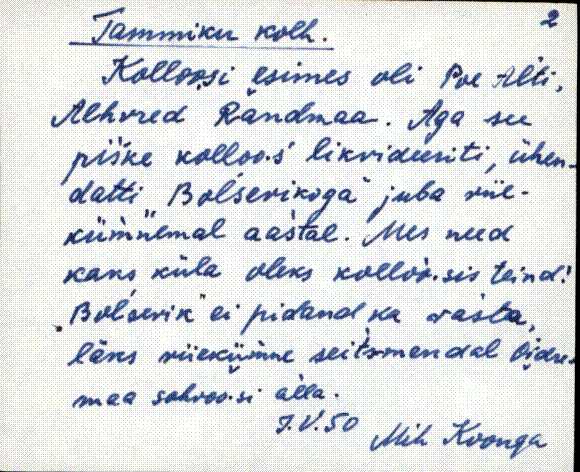 2
Tammiku kolh.
Kolloosi esimes oli Poe Alti,
Alhvred Randmaa. Aga see
piske kolloos likvideeriti, ühen-
datti „Bolševikoga" juba viie-
kümnemal aastal. Mes need
kaks küla oleks kolloosis teind!
„Bolševik" ei pidand ka vasta,
läks viiekümne seitsmendal Oidre-
maa sohvoosi alla.
J.V.50
Mih Kvonga